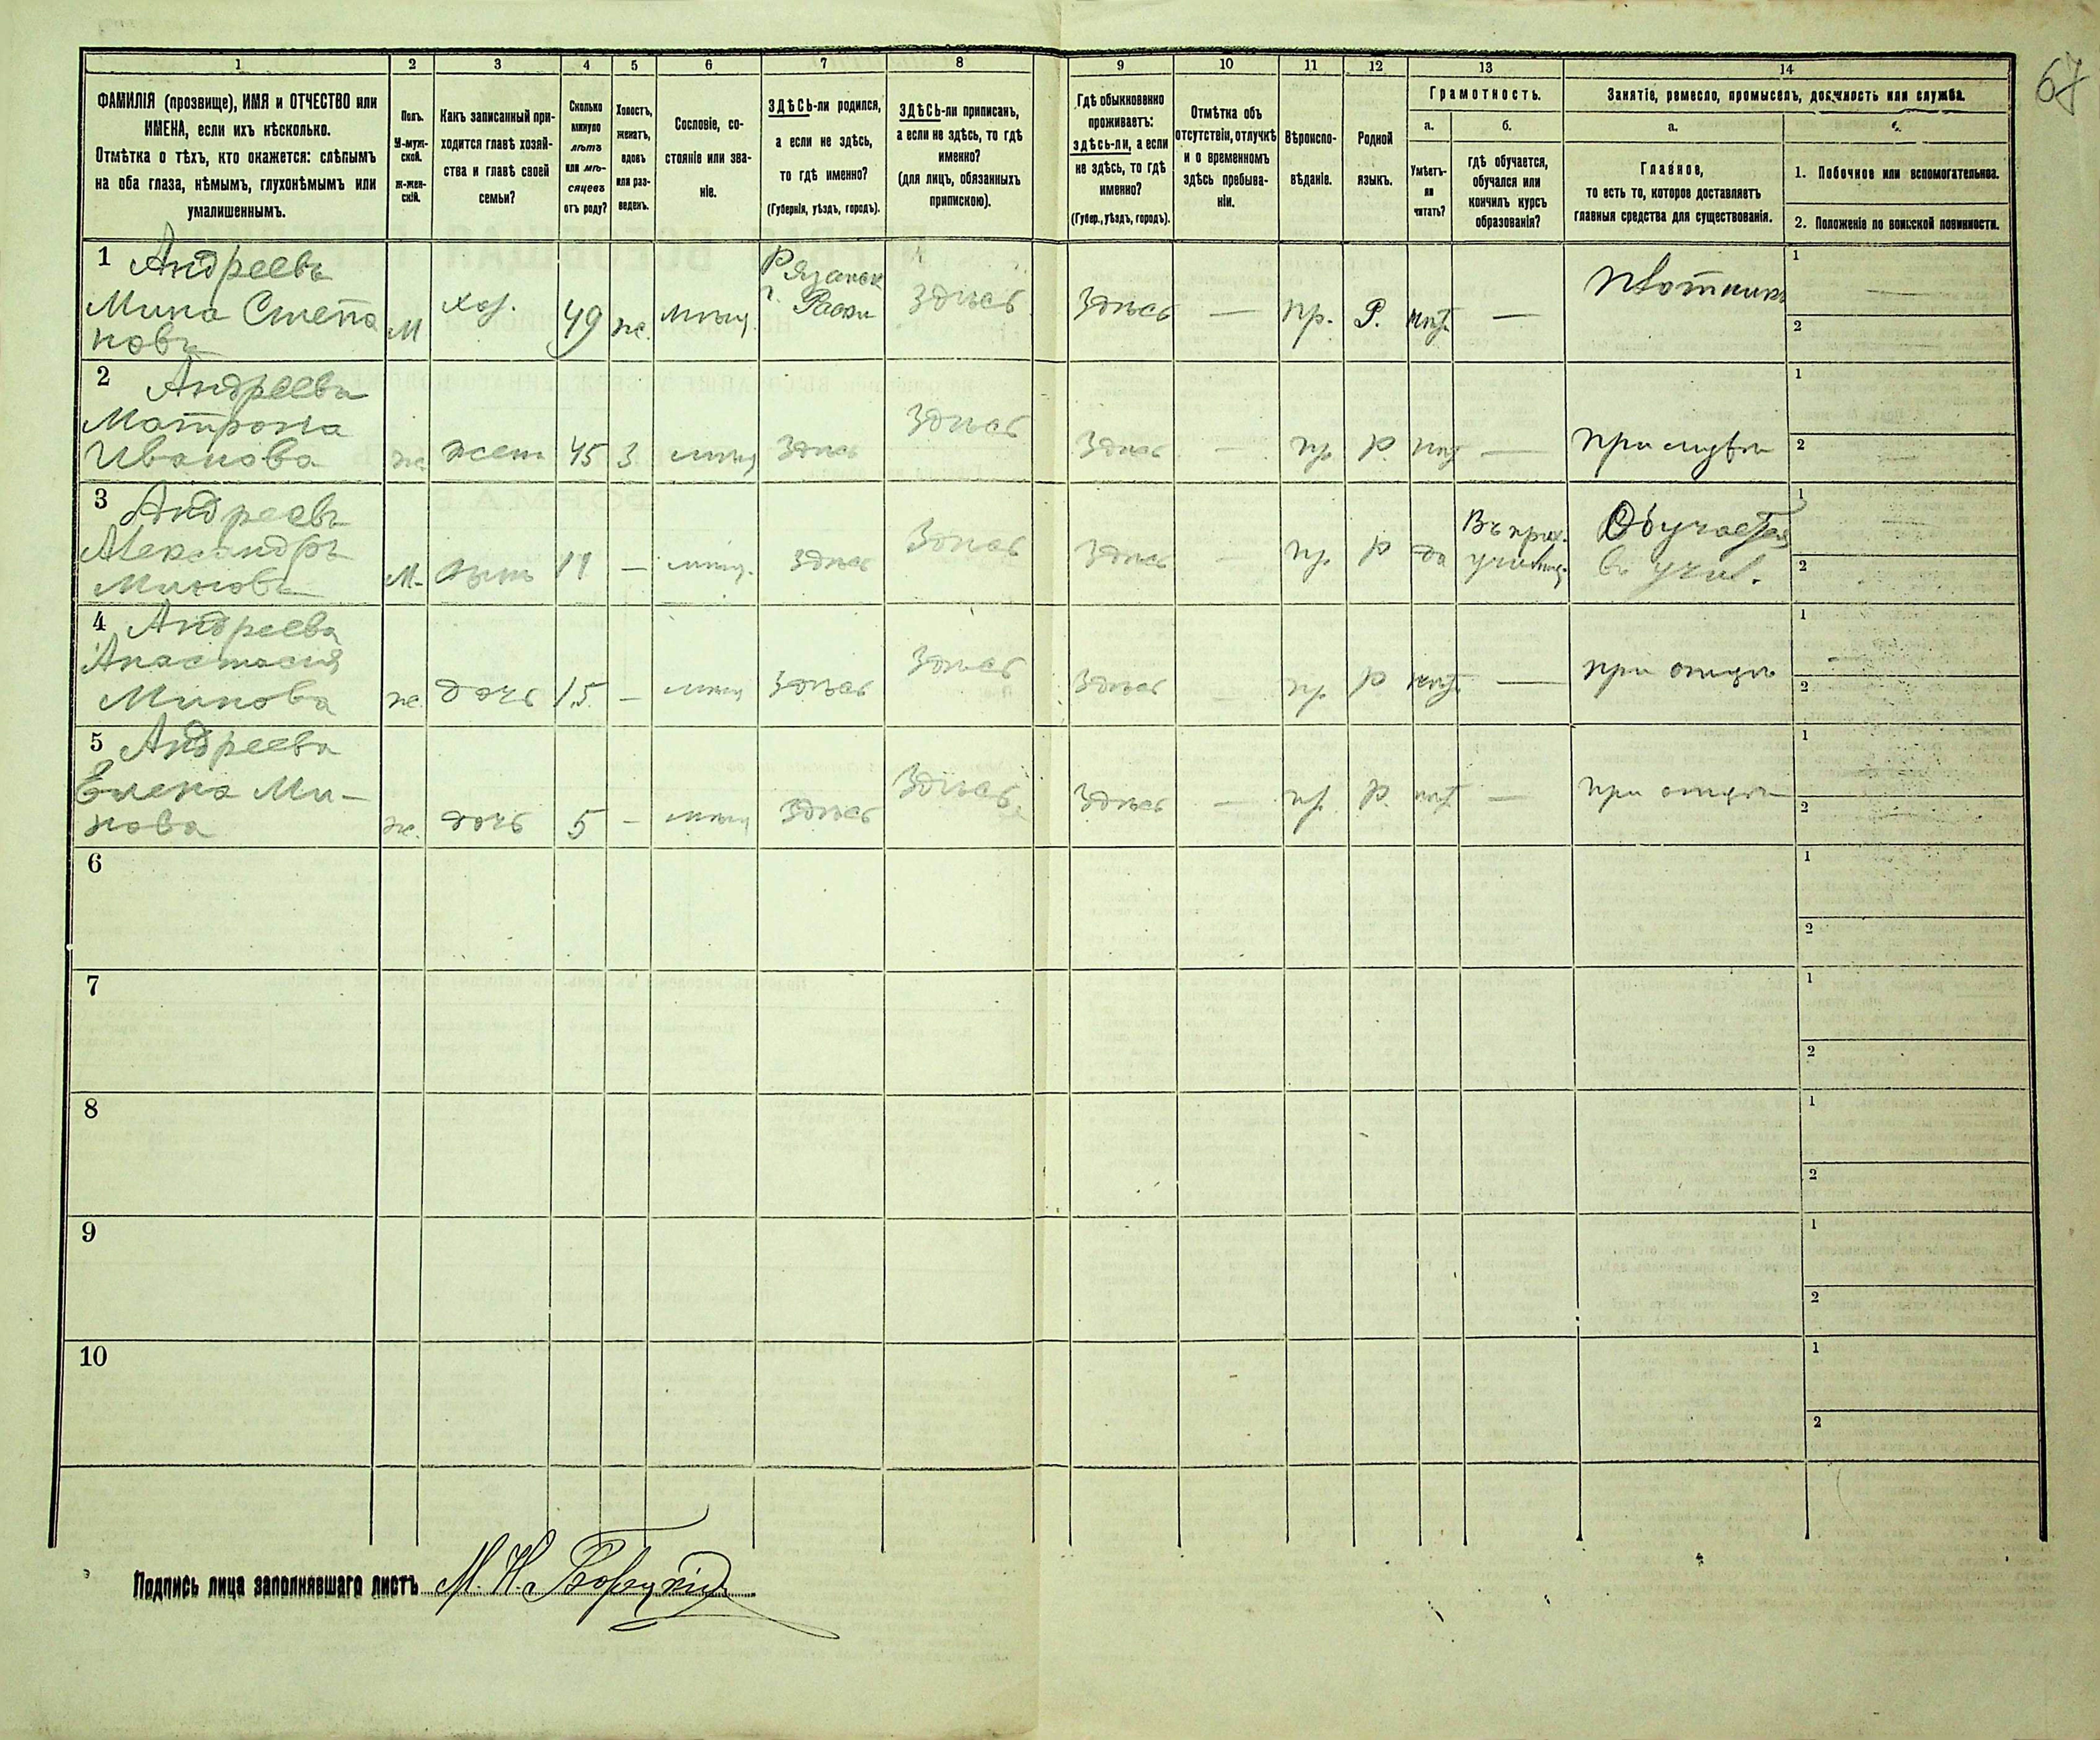 67
1 2 3 4 5 6 7 8 9 10 11 12 13 14
ФАМИЛІЯ (прозвище), ИМЯ и ОТЧЕСТВО или
ИМЕНА, если ихъ нѣсколько.
Отмѣтка о тѣхъ, кто окажется: слѣпымъ
на оба глаза, нѣмымъ, глухонѣмымъ или
умалишеннымъ.
Полъ.
М-муж-
ской.
ж-жен-
скій.
Какъ записанный при-
ходится главѣ хозяй-
ства и главѣ своей
семьи?
Сколько
минуло
лѣтъ
или мѣ-
сяцевъ
отъ роду?
Холостъ,
женатъ,
вдовъ
или раз-
веденъ.
Сословіе, со-
стояніе или зва-
ніе.
ЗДѢСЬ-ли родился,
а если не здѣсь,
то гдѣ именно?
(Губернія, уѣздъ, городъ).
ЗДѢСЬ-ли приписанъ,
а если не здѣсь, то гдѣ
именно?
(для лицъ, обязанныхъ
припискою).
Гдѣ обыкновенно
проживаетъ:
здѣсь-ли, а если
не здѣсь, то гдѣ
именно?
(Губер., уѣздъ, городъ).
Отмѣтка объ
отсутствіи, отлучкѣ
и о временномъ
здѣсь пребыва-
ніи.
Вѣроиспо-
вѣданіе.
Родной
языкъ.
Грамотность.
а.
Умѣетъ-
ли
читать?
б.
гдѣ обучается,
обучался или
кончилъ курсъ
образованія?
Занятіе, ремесло, промыселъ, должность или служба.
а.
Главное,
то есть то, которое доставляетъ
главныя средства для существованія.
1. Побочное или вспомогательное.
2. Положеніе по воинской повинности.
1 Андреевъ
Мина Степа
новъ
М
хоз.
49
ж.
мѣщ.
Рязанск
г.
Здѣсь
Здѣсь
—
пр.
Р.
нѣт
—
Плотникъ
1
2
2 Андреева
Матрона
Иванова
ж
жена
45
З
мѣщ
Здѣсь
Здѣсь
Здѣсь
—
пр
Р
нѣт
—
1
2
3 Андреевъ
Александръ
Миновъ
М.
сынъ
11
—
мѣщ.
Здѣсь
Здѣсь
Здѣсь
—
пр
Р
да
Въ прих.
училищ.
Обучается
въ учил.
1
2
4 Андреева
Анастасия
Минова
ж.
дочь
15.
—
мѣщ
Здѣсь
Здѣсь
Здѣсь
—
пр
Р
нѣт
—
при отцѣ
1
2
5 Андреева
Елена Ми-
нова
ж.
дочь
5
—
мѣщ
Здѣсь
Здѣсь
Здѣсь
—
пр
Р.
нѣт
—
при отцѣ
1
2
6
1
2
7
1
2
8
1
2
9
1
2
10
1
2
Подпись лица заполнявшаго листъ М. Н.